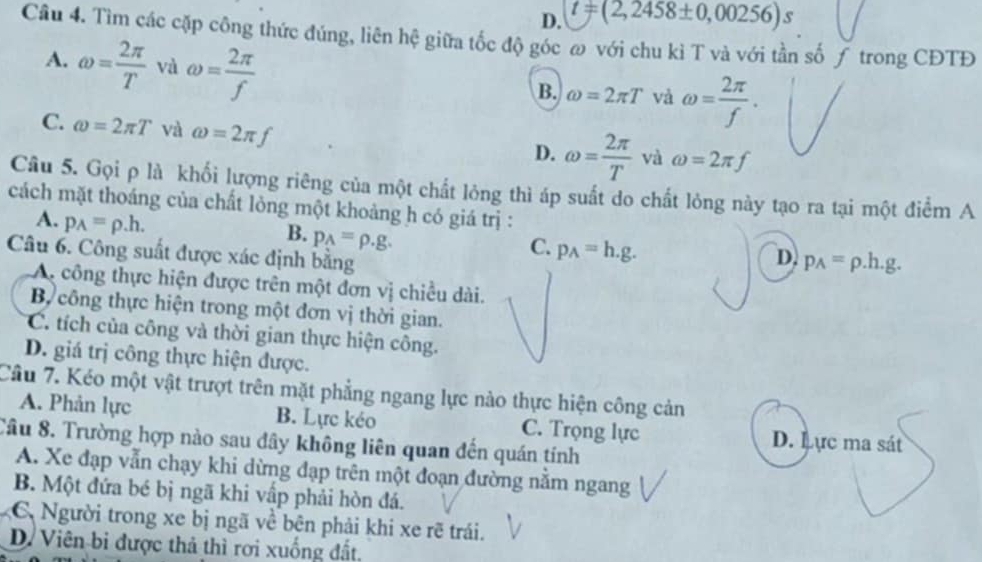 D. t = (2,2458±0,00256) s
Câu 4. Tìm các cặp công thức đúng, liên hệ giữa tốc độ góc ω với chu kì T và với tần số f trong CĐTĐ
A. ω = 2π/T và ω = 2π/f
B. ω = 2πT và ω = 2π/f .
C. ω = 2πT và ω = 2πf
D. ω = 2π/T và ω = 2πf
Câu 5. Gọi ρ là khối lượng riêng của một chất lỏng thì áp suất do chất lỏng này tạo ra tại một điểm A
cách mặt thoáng của chất lỏng một khoảng h có giá trị :
A. pA = ρ.h. B. pA = ρ.g. C. pA = h.g. D. pA = ρ.h.g.
Câu 6. Công suất được xác định bằng
A. công thực hiện được trên một đơn vị chiều dài.
B. công thực hiện trong một đơn vị thời gian.
C. tích của công và thời gian thực hiện công.
D. giá trị công thực hiện được.
Câu 7. Kéo một vật trượt trên mặt phẳng ngang lực nào thực hiện công cản
A. Phản lực B. Lực kéo C. Trọng lực D. Lực ma sát
Câu 8. Trường hợp nào sau đây không liên quan đến quán tính
A. Xe đạp vẫn chạy khi dừng đạp trên một đoạn đường nằm ngang
B. Một đứa bé bị ngã khi vấp phải hòn đá.
C. Người trong xe bị ngã về bên phải khi xe rẽ trái.
D. Viên bi được thả thì rơi xuống đất.